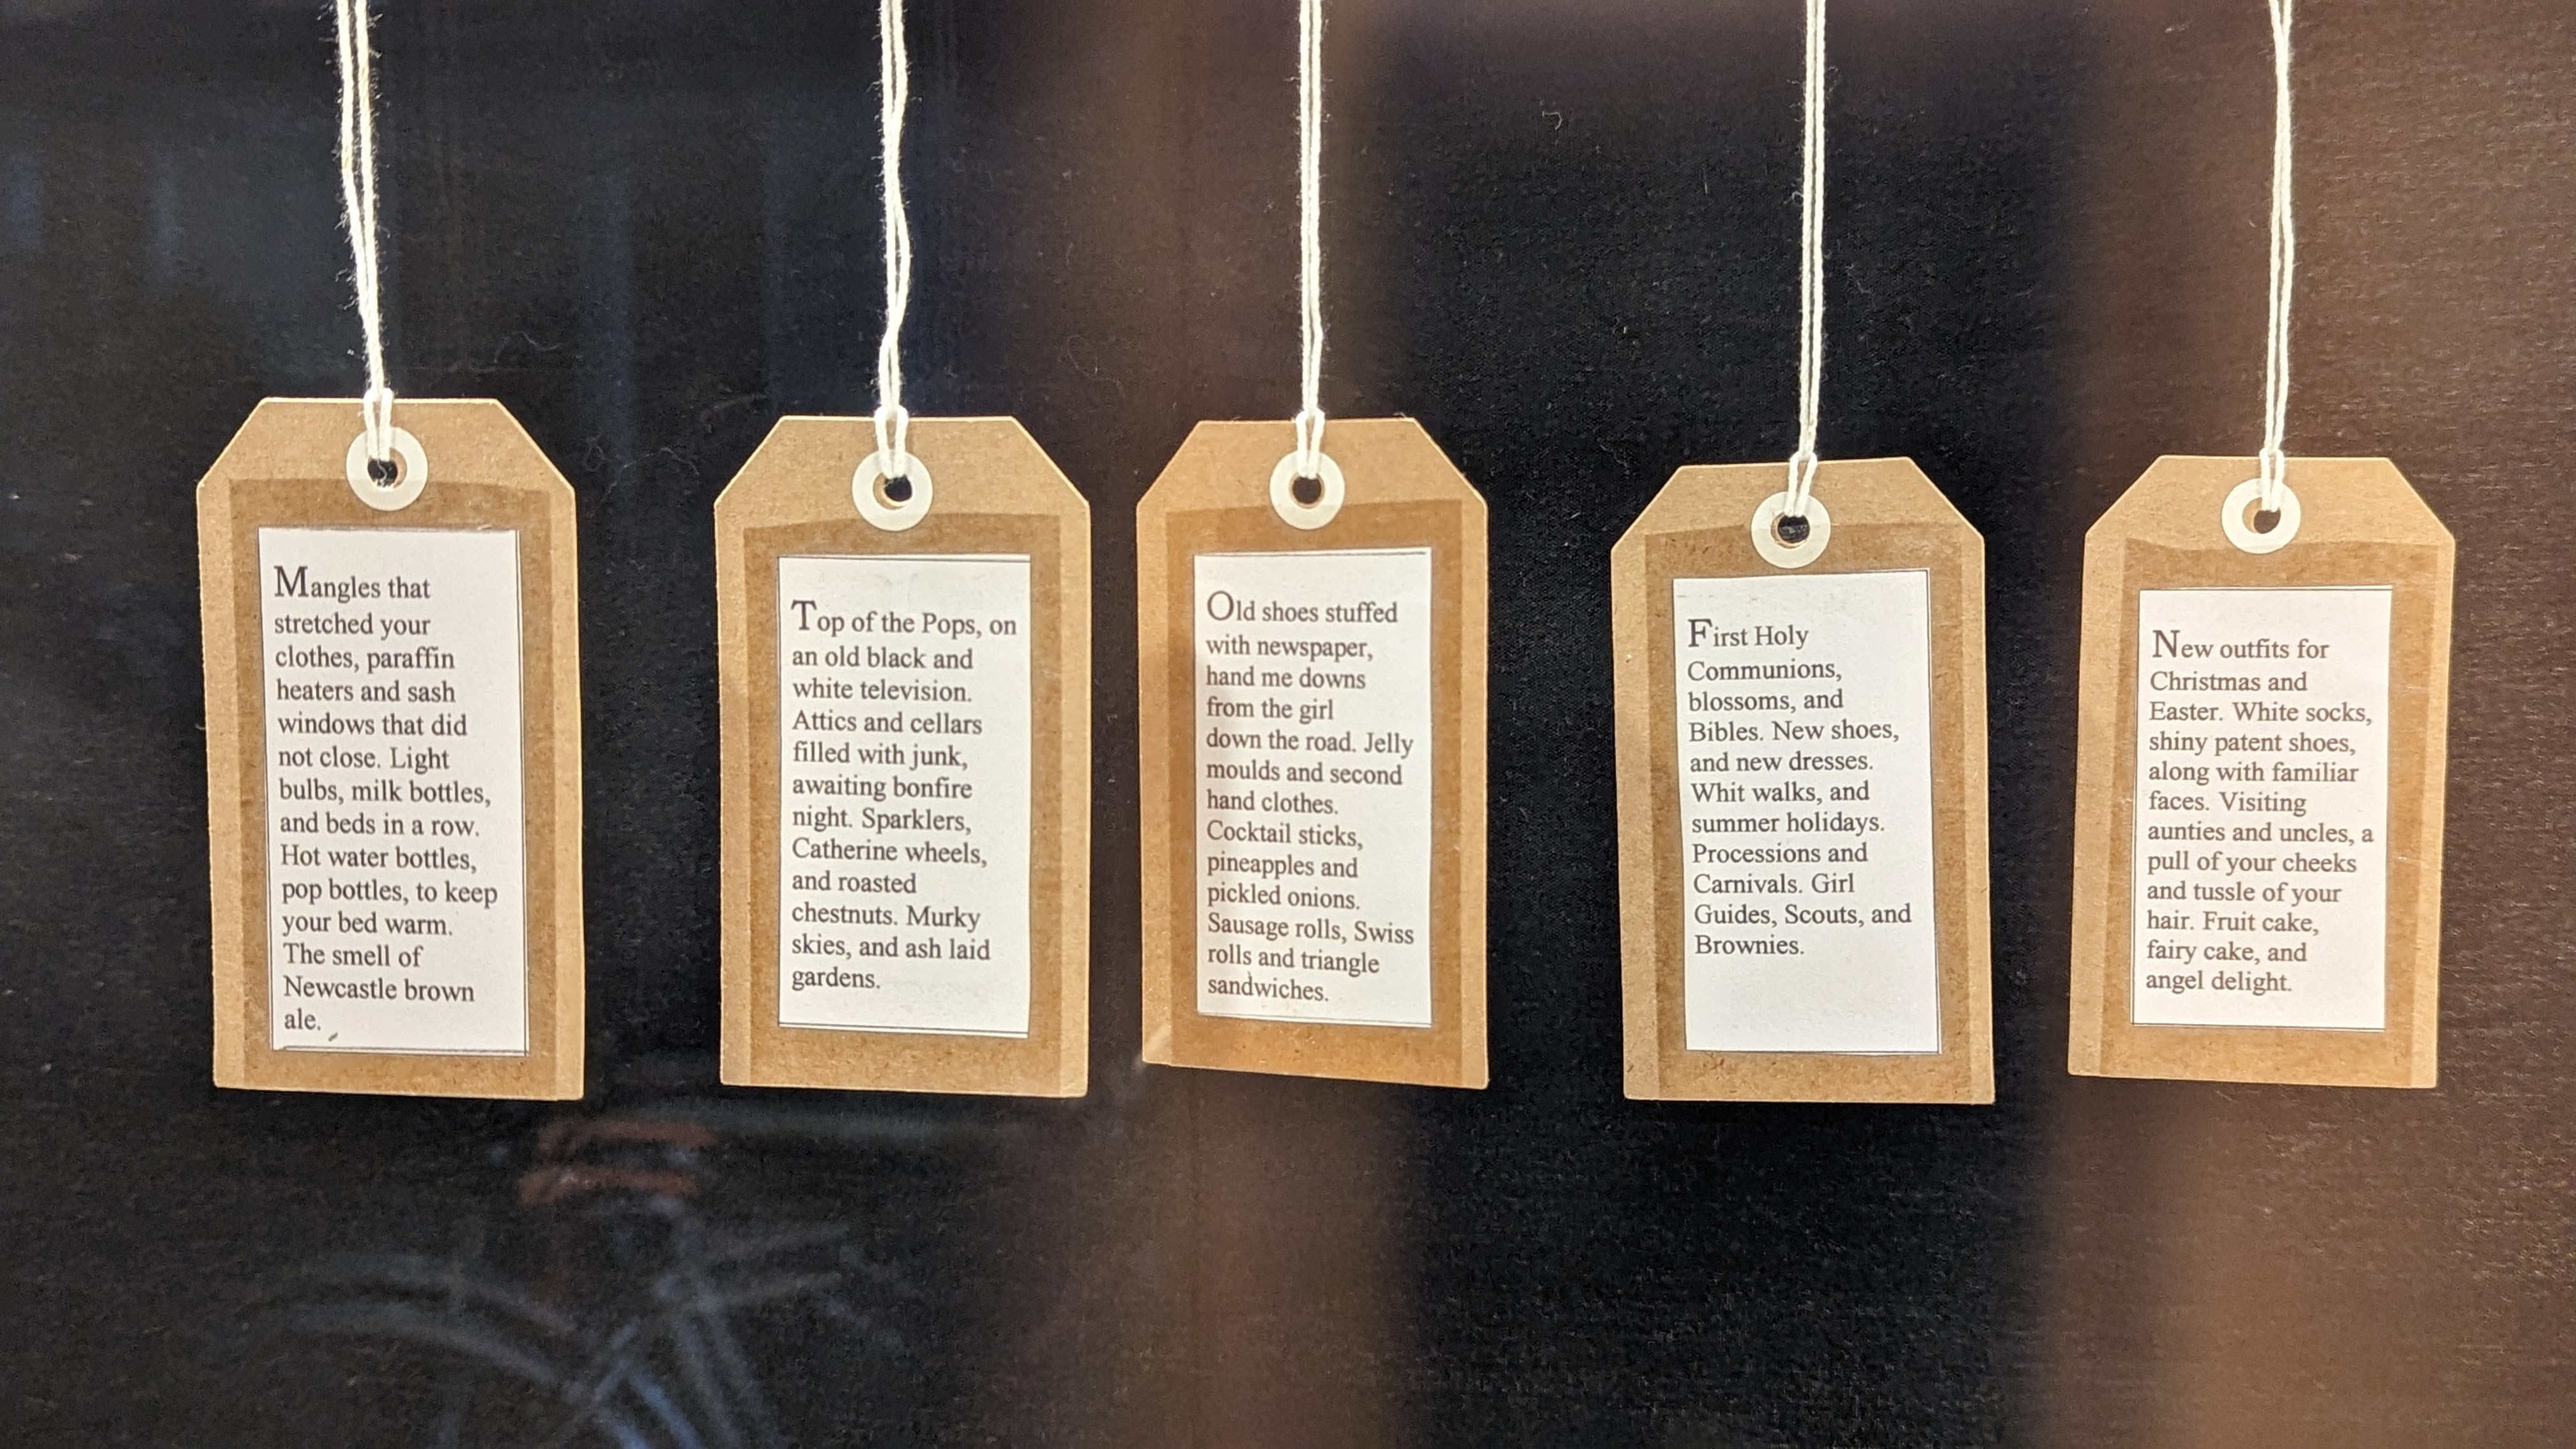 Mangles that
stretched your
clothes, paraffin
heaters and sash
windows that did
not close. Light
bulbs, milk bottles,
and beds in a row.
Hot water bottles,
pop bottles, to keep
your bed warm.
The smell of
Newcastle brown
ale.
Top of the Pops, on
an old black and
white television.
Attics and cellars
filled with junk,
awaiting bonfire
night. Sparklers,
Catherine wheels,
and roasted
chestnuts. Murky
skies, and ash laid
gardens.
Old shoes stuffed
with newspaper,
hand me downs
from the girl
down the road. Jelly
moulds and second
hand clothes.
Cocktail sticks,
pineapples and
pickled onions.
Sausage rolls, Swiss
rolls and triangle
sandwiches.
First Holy
Communions,
blossoms, and
Bibles. New shoes,
and new dresses.
Whit walks, and
summer holidays.
Processions and
Carnivals. Girl
Guides, Scouts, and
Brownies.
New outfits for
Christmas and
Easter. White socks,
shiny patent shoes,
along with familiar
faces. Visiting
aunties and uncles, a
pull of your cheeks
and tussle of your
hair. Fruit cake,
fairy cake, and
angel delight.